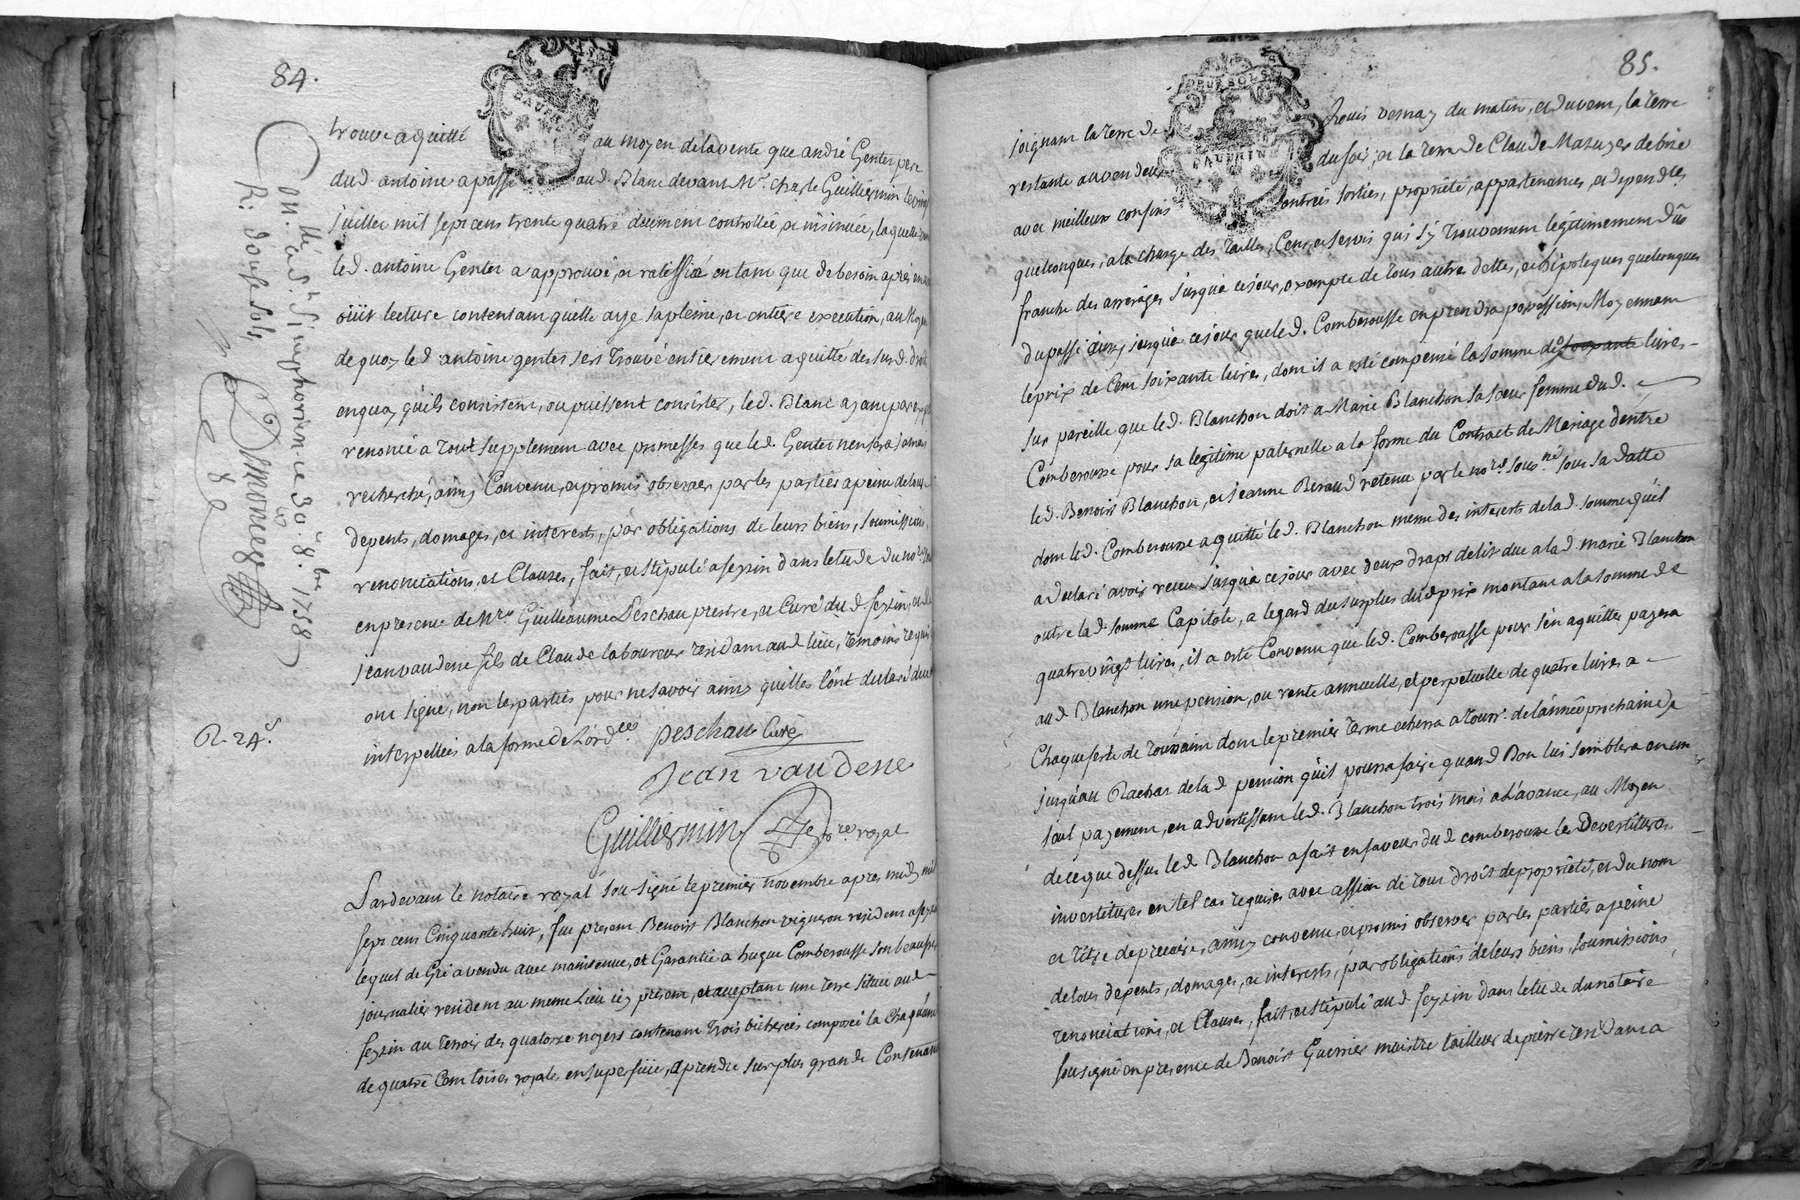 84.
trouve aquitté au moyen de la vente que andré Genter pere
dud. antoine a passé aud. Blanc devant Mr. Charle Guilliermin le vingt
juillet mil sept cens trente quatre düement controllée et insinuée, laquelle
led. antoine Genter a approuvé, et ratiffiée en tant que de besoin après en avoir
oüit lecture consentant qu'elle aye sa pleine, et entiere execution, au moyen
de quoy led antoine genter sera trouvé entierement aquitté des susd. droits
en quoy qu'ils consistent, ou puissent consister, led. Blanc ayant par exprès
renoncé a tout supplement avec promesses que led. Genter n'en sera jamais
recherché, ainsy convenu, et promis observer par les parties a peine de tous
depents, domages, et interests, par obligations de leurs biens, soumissions,
renonciations, et Clauses, fait, et stipulé a feyzin dans l'etude du nore.
en presence de Mre. Guilleaume Deschau prestre, et Curé dud. feyzin, et de
jean vaudene fils de Claude laboureur residant aud. lieu, temoins requis
ont signé, non les parties pour ne savoir ainsy qu'elles l'ont declaré duem.
interpellées a la forme de l'ordces
Deschau Curé
Jean vaudene
Guilliermin nre royal
onllé. a St. Simphorien ce 30e. 8bre 1758
R: douze sols
R. 24s.
Pardevant le notaire royal sousigné le premier novembre apres midy mil
sept cens Cinquante huit, fut present Benoist Blanchon vigneron resident a feyzin
lequel de Gré a vendu avec maintenue, et Garantie a hugue Comberousse son beaufrere
journalier resident au meme Lieu icy présent, et acceptant une terre située aud
feyzin au teroir des quatorze noyers contenant trois bicherées composée la Chaqu'une
de quatre Cent toises royales en superficie, a prendre sur plus grande Contenance
85.
DEUX SOLS
DAUPHINE
joignant la terre de Louis vernay du matin, et du vent, la terre
restante au vendeur du soir, et la terre de Claude Mazuyer de bise
avec meilleurs confins entrées sorties, propriété, appartenances, et dependces
quelconques, a la charge des Tailles, Cens, et servis qui s'y trouveront legitimement dûs
franche des arrerages jusqu'a ce jour, exempte de tous autre dette, et hipoteques quelconques
du passé aussy jusqu'a ce jour que led. Comberousse en prendra possession, Moyennant
le prix de Cent soixante livres, dont il a esté compensé la somme de soixante livres
sur pareille que led. Blanchon doit a Marie Blanchon sa soeur femme dud.
Comberousse pour sa legitime paternelle a la forme du Contract de Mariage d'entre
led. Benoist Blanchon, et jeanne Beraud retenu par le nore. sousné. sous sa datte
dont led. Comberousse a quitté led. Blanchon meme des interests de lad. somme qu'il
a declaré avoir receu jusqu'a ce jour avec deux draps de lit due a lad marie Blanchon
outre lad. somme Capitale, a legard du surplus dud. prix montant a la somme de
quatre vingt livres, il a esté Convenu que led. Comberousse pour s'en aquitter payera
aud Blanchon une pension, ou rente annuelle, et perpetuelle de quatre livres a
Chaque feste de Toussaint dont le premier terme echerra a touss. de l'année prochaine
jusqu'au Rachat de lad. pension qu'il pourra faire quand Bon lui semblera en un
seul payement, en advertissant led. Blanchon trois mois a L'avance, au Moyen
de ce que dessus led Blanchon a fait en faveur dud comberousse les Devestitures
investitures en tel cas requises avec cession de tous droits de propriété, et du nom
et titre de precaire, ainsy convenu, et promis observer par les parties a peine
de tous depents, domages, et interests, par obligations de leurs biens, soumissions
renonciations, et Clauses, fait, et stipulé aud feyzin dans l'etude du notaire
sousigné en presence de Benoist Guerrier maistre tailleur de pierre residant a